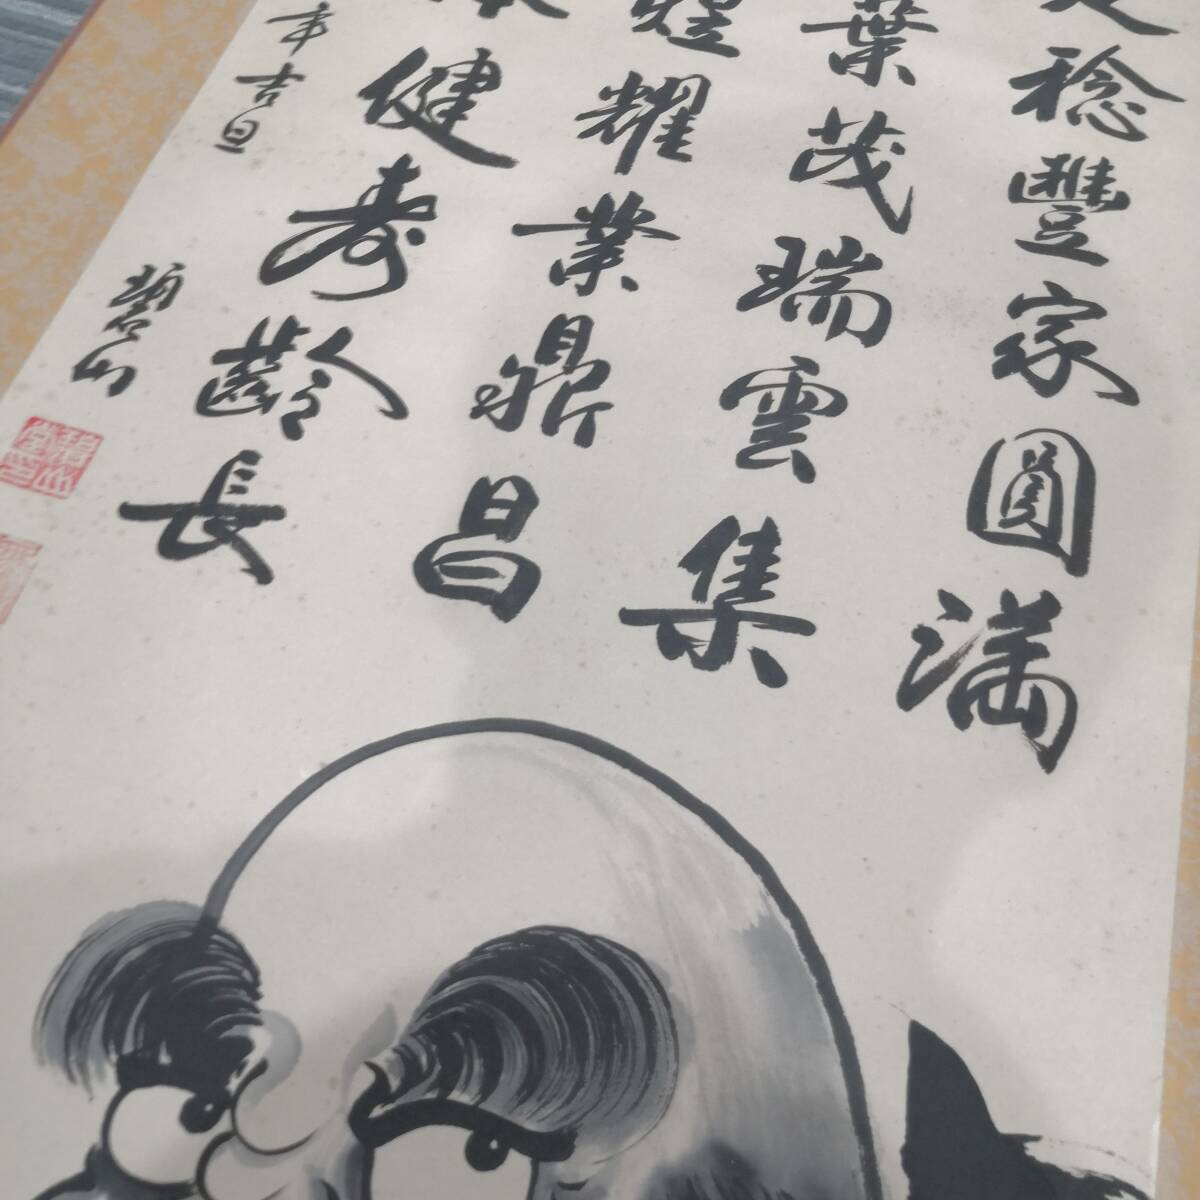 稔豐家圓滿
葉茂瑞雲集
耀業鼎昌
健壽齡長
年吉旦
碧山